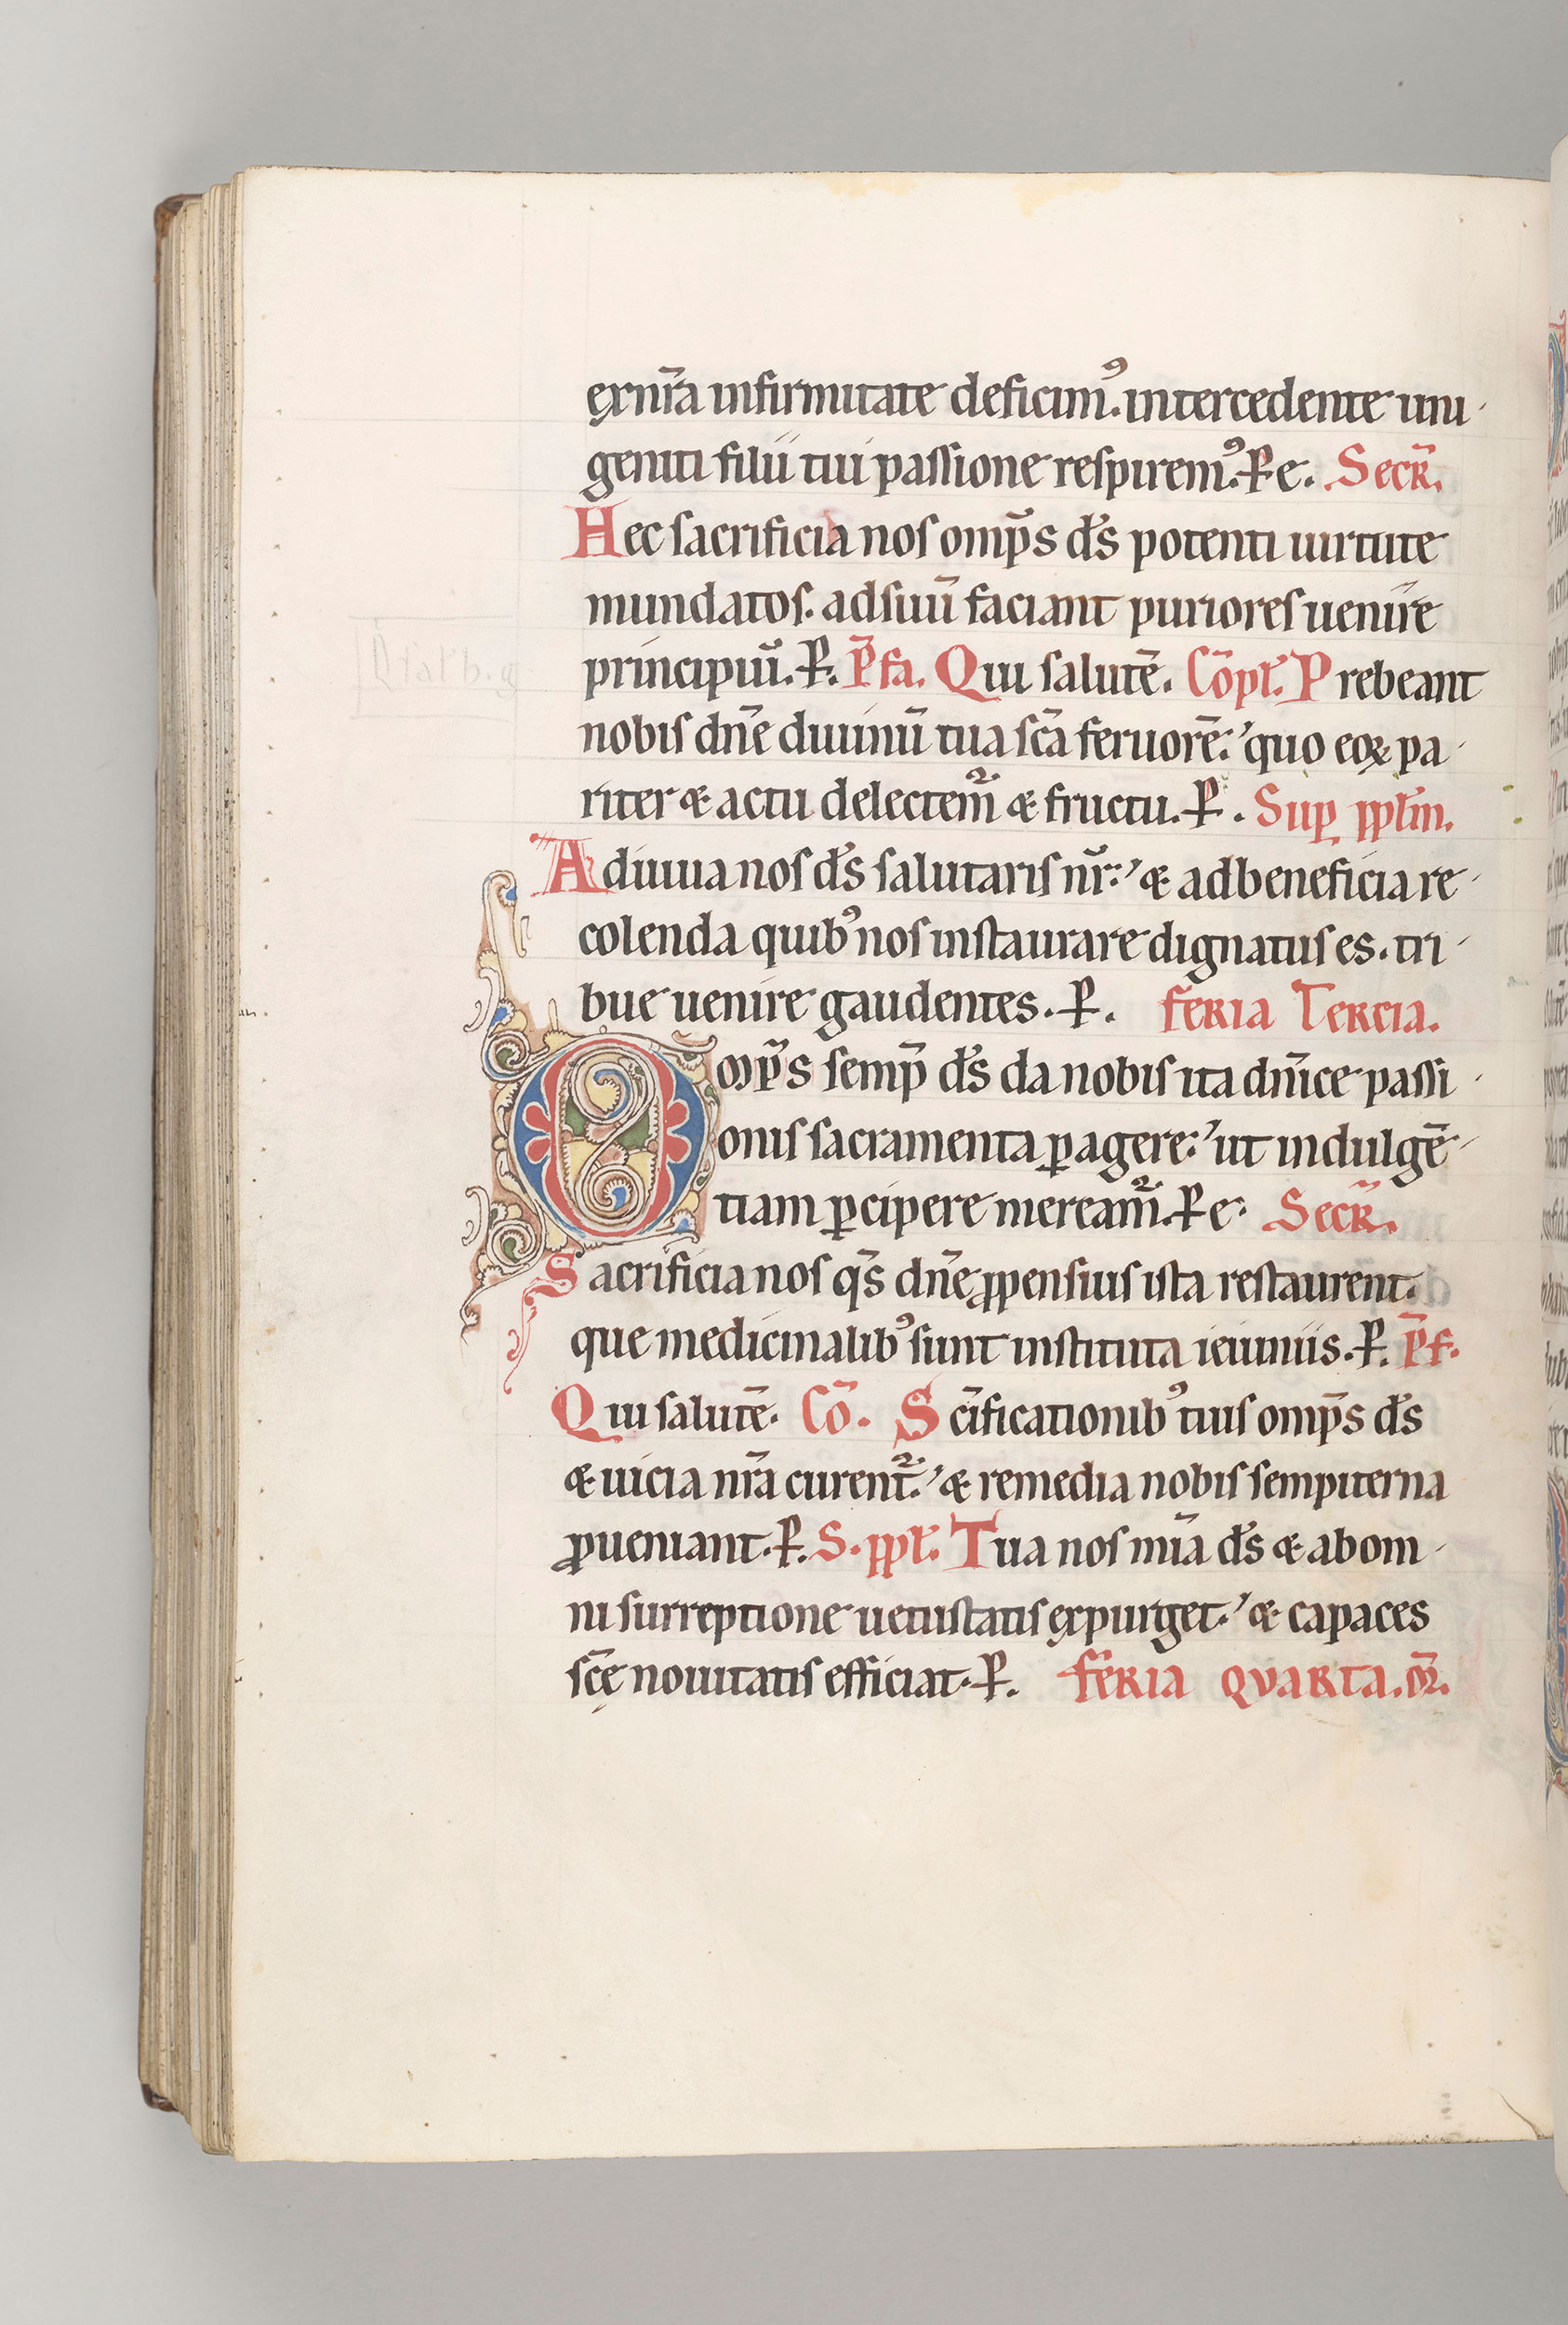 ex nr̄a infirmitate deficimꝰ. intercedente uni
geniti filii tui passione respiremꝰ. P̶ e. Secr̄.
Hec sacrificia nos omp̄s ds̄ potenti uirtute
mundatos. ad suū faciant puriores uenire
principiū. P̶. P̄fa. Qui salutē. Cōpl̄. Prebeant
nobis dn̄e diuinū tua sc̄a feruorē: quo eoꝝ pa
riter & actu delectem̄ & fructu. P̶. Sup̱ pp̱l̄m.
Adiuua nos ds̄ salutaris nr̄: & ad beneficia re
colenda quibꝰ nos instaurare dignatus es. tri
bue uenire gaudentes. P̶. feria Tercia.
Omp̄s semp̄ ds̄ da nobis ita dn̄ice passi
onis sacramenta ꝑagere: ut indulgē
tiam ꝑcipere meream̄. P̶ e. Secr̄.
Sacrificia nos qs̄ dn̄e ꝓpensius ista restaurent.
que medicinalibꝰ sunt instituta ieiuniis. P̶. P̄f.
Qui salutē. Cō. Sc̄ificationibꝰ tuis omp̄s ds̄
& uicia nr̄a curent̄. & remedia nobis sempiterna
ꝓueniant. P̶. S. pp̱l̄. Tua nos mīa ds̄ & ab om
ni surreptione uetustatis expurget. & capaces
sc̄ę nouitatis efficiat. P̶. feria qvarta. or̄.